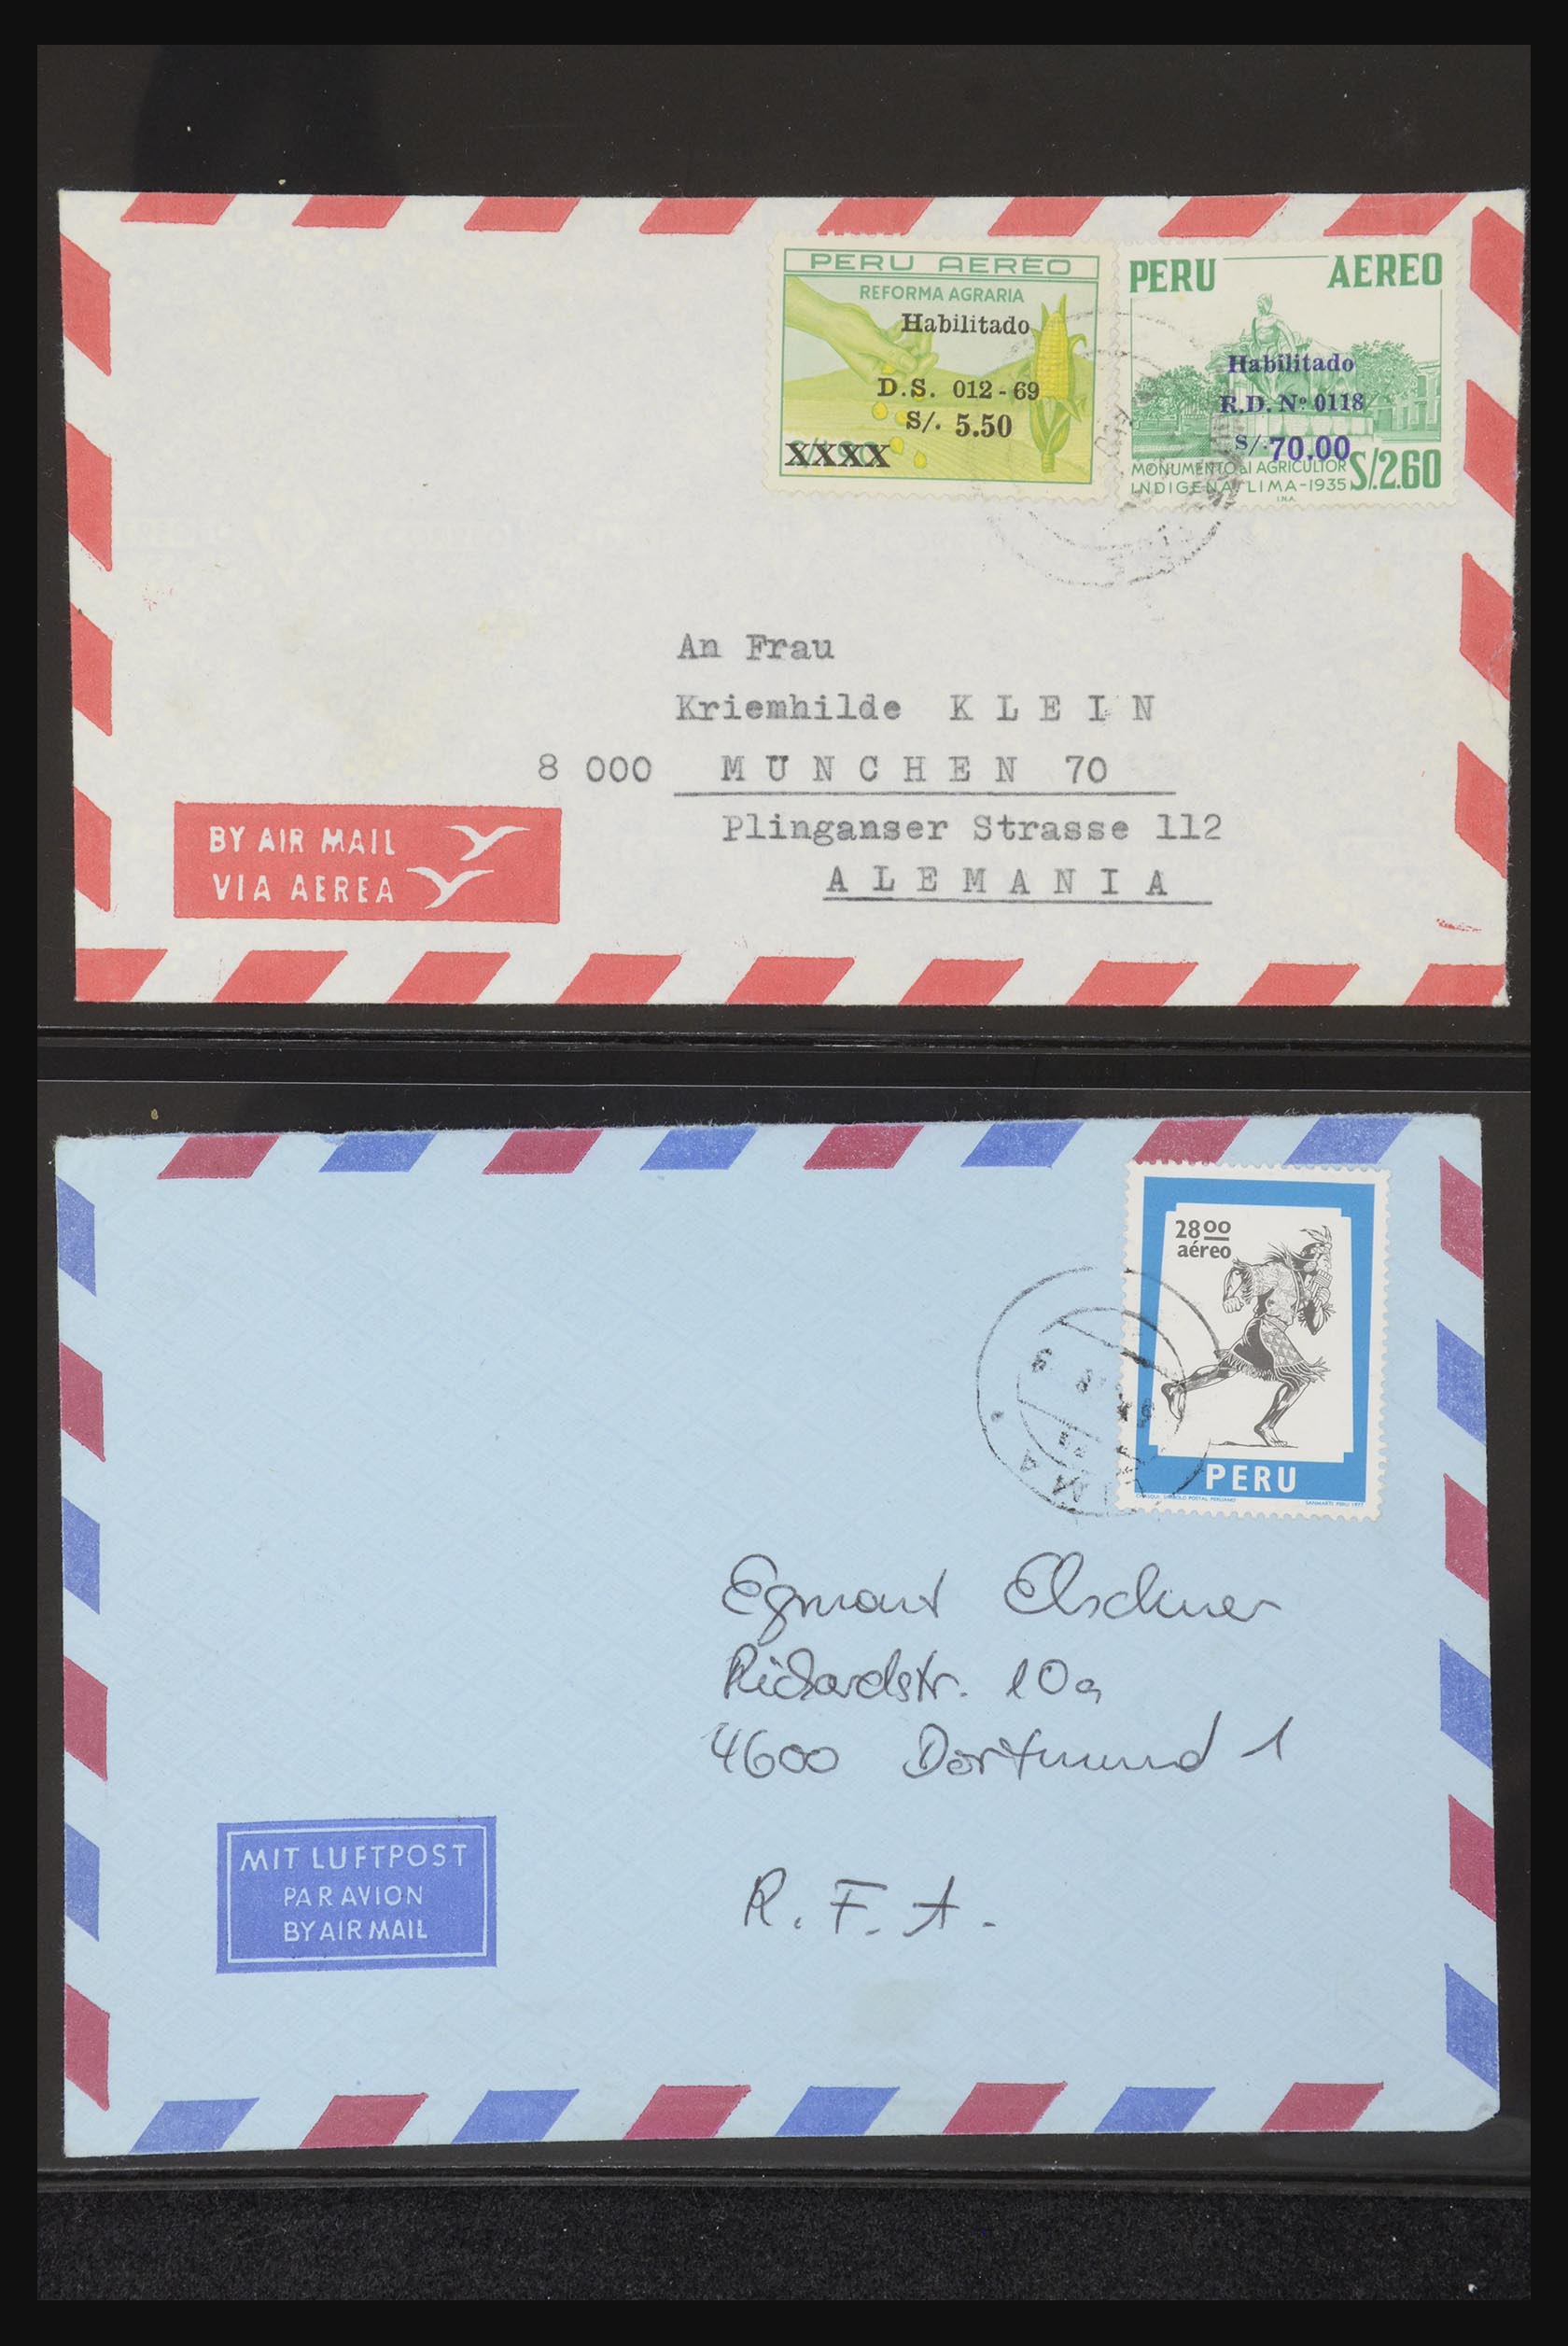 PERU AEREO
REFORMA AGRARIA
Habilitado
D.S. 012-69
S/. 5.50
XXXX
PERU AEREO
Habilitado
R.D. Nº 0118
S/. 70.00
MONUMENTO al AGRICULTOR
INDIGENA LIMA-1935 S/2.60
I.N.A.
An Frau
Kriemhilde K L E I N
8 000 M U N C H E N 70
Plinganser Strasse 112
A L E M A N I A
BY AIR MAIL
VIA AEREA
28.00
aéreo
PERU
SANMARTI PERU 1977
LIMA
Egmont Elschner
Richardstr. 10a
4600 Dortmund 1
R. F. A.
MIT LUFTPOST
PAR AVION
BY AIR MAIL